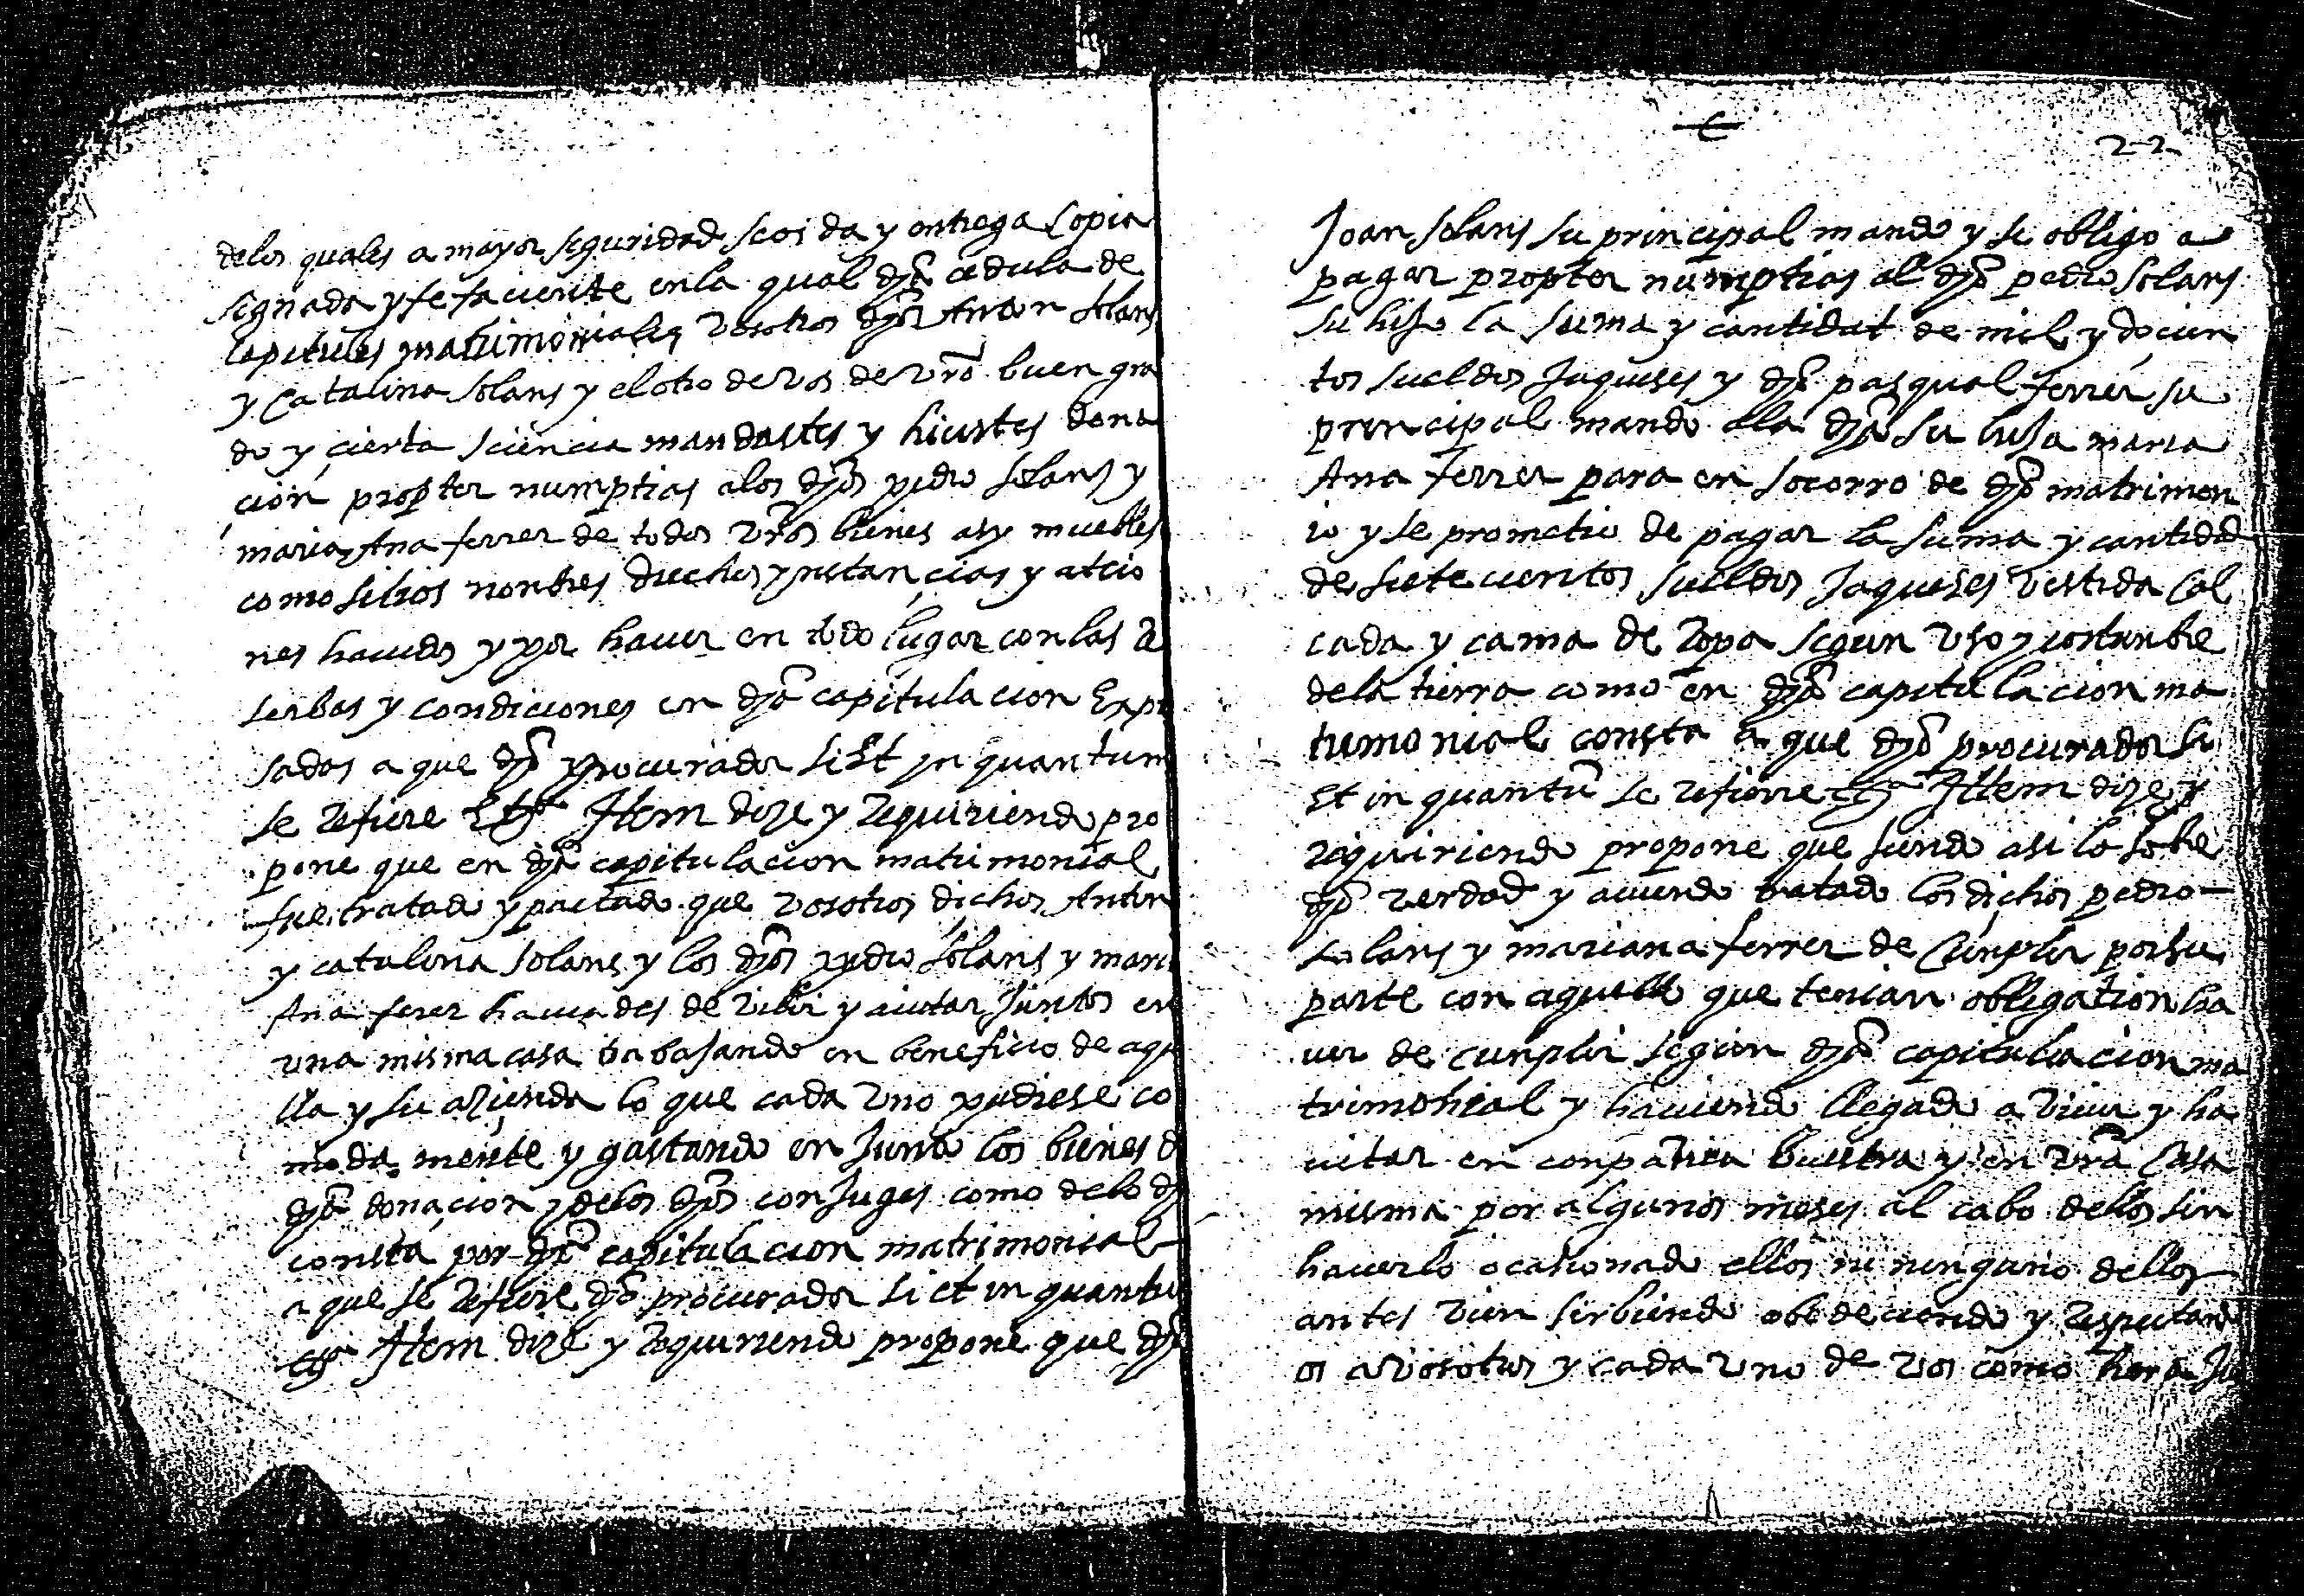 delos quales a mayor seguridad seos da y entrega Copia
signada y fefaciente enla qual dha cedula de
Capitulos matrimoniales vosotros dhos Anton Solans
y Catalina Solans y el otro de vos de vro buen gra
do y cierta sciencia mandastes y hicistes dona
cion propter numptias alos dhos pedro Solans y
maria Ana ferrer de todos vros bienes asy muebles
como sitios nombres drechos ynstancias y actio
nes hauidos y por hauer en todo lugar con las Re
serbas y condiciones en dha capitulacion Expre
sadas a que dho procurador si Et in quantum
se refiere Etc Item dize y requiriendo pro
pone que en dha capitulacion matrimonial
fue tratado y pactado que vosotros dichos Anton
y catalina Solans y los dhos pedro Solans y maria
Ana ferer hauiades de vibir y auitar Juntos en
vna misma casa trabajando en beneficio de aque
lla y su azienda lo que cada vno pudiese co
moda mente y gastando en Junto los bienes d
dha donacion y delos dhos conJuges como delo dho
consta por dha capitulacion matrimonial
a que se refiere dho procurador si et in quantum
etc Item dize y requiriendo propone que dho
22
Joan Solans su principal mando y se obligo a
pagar propter numptias al dho pedro Solans
su hijo la suma y cantidat de mil y docien
tos sueldos Jaqueses y dho pasqual ferrer su
principal mando alla dha su hija maria
Ana ferrer para en socorro de dho matrimon
io y se prometio de pagar la suma y cantidad
de sietecientos sueldos Jaqueses vestida Cal
cada y cama de ropa segun vso y costunbre
dela tierra como en dha capitulacion ma
trimonial consta a que dho procurador si
Et in quantu se refierre etc Ittem dize y
requiriendo propone que siendo asi lo sobre
dho verdad y auiendo tratado los dichos pedro
Solans y mariana ferrer de Cunplir por su
parte con aquello que tenian obligation ha
uer de cunplir segun dha capitulacion ma
trimonial y hauiendo llegado a viuir y ha
uitar en conpañia buestra y en vra Casa
misma por algunos meses al cabo dellos sin
hauerlo ocasionado ellos ni ninguno dellos
antes vien serbiendo obedeciendo y respectand
os a vosotros y cada vno de vos como hera Ju